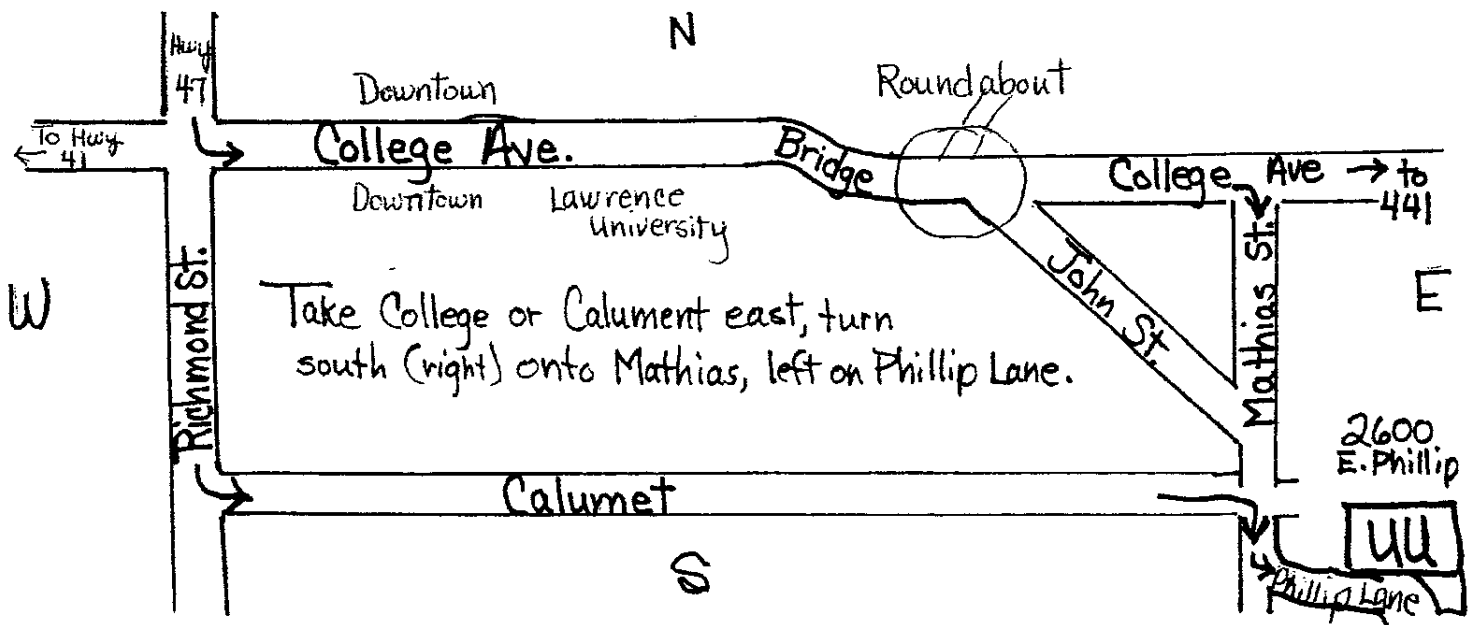 N
Hwy
47
Downtown
Roundabout
To Hwy
41
College Ave.
Bridge
College Ave → to
441
Downtown
Lawrence
University
W
Richmond St.
John St.
Mathias St.
E
Take College or Calument east, turn
south (right) onto Mathias, left on Phillip Lane.
2600
E. Phillip
Calumet
UU
S
Phillip Lane